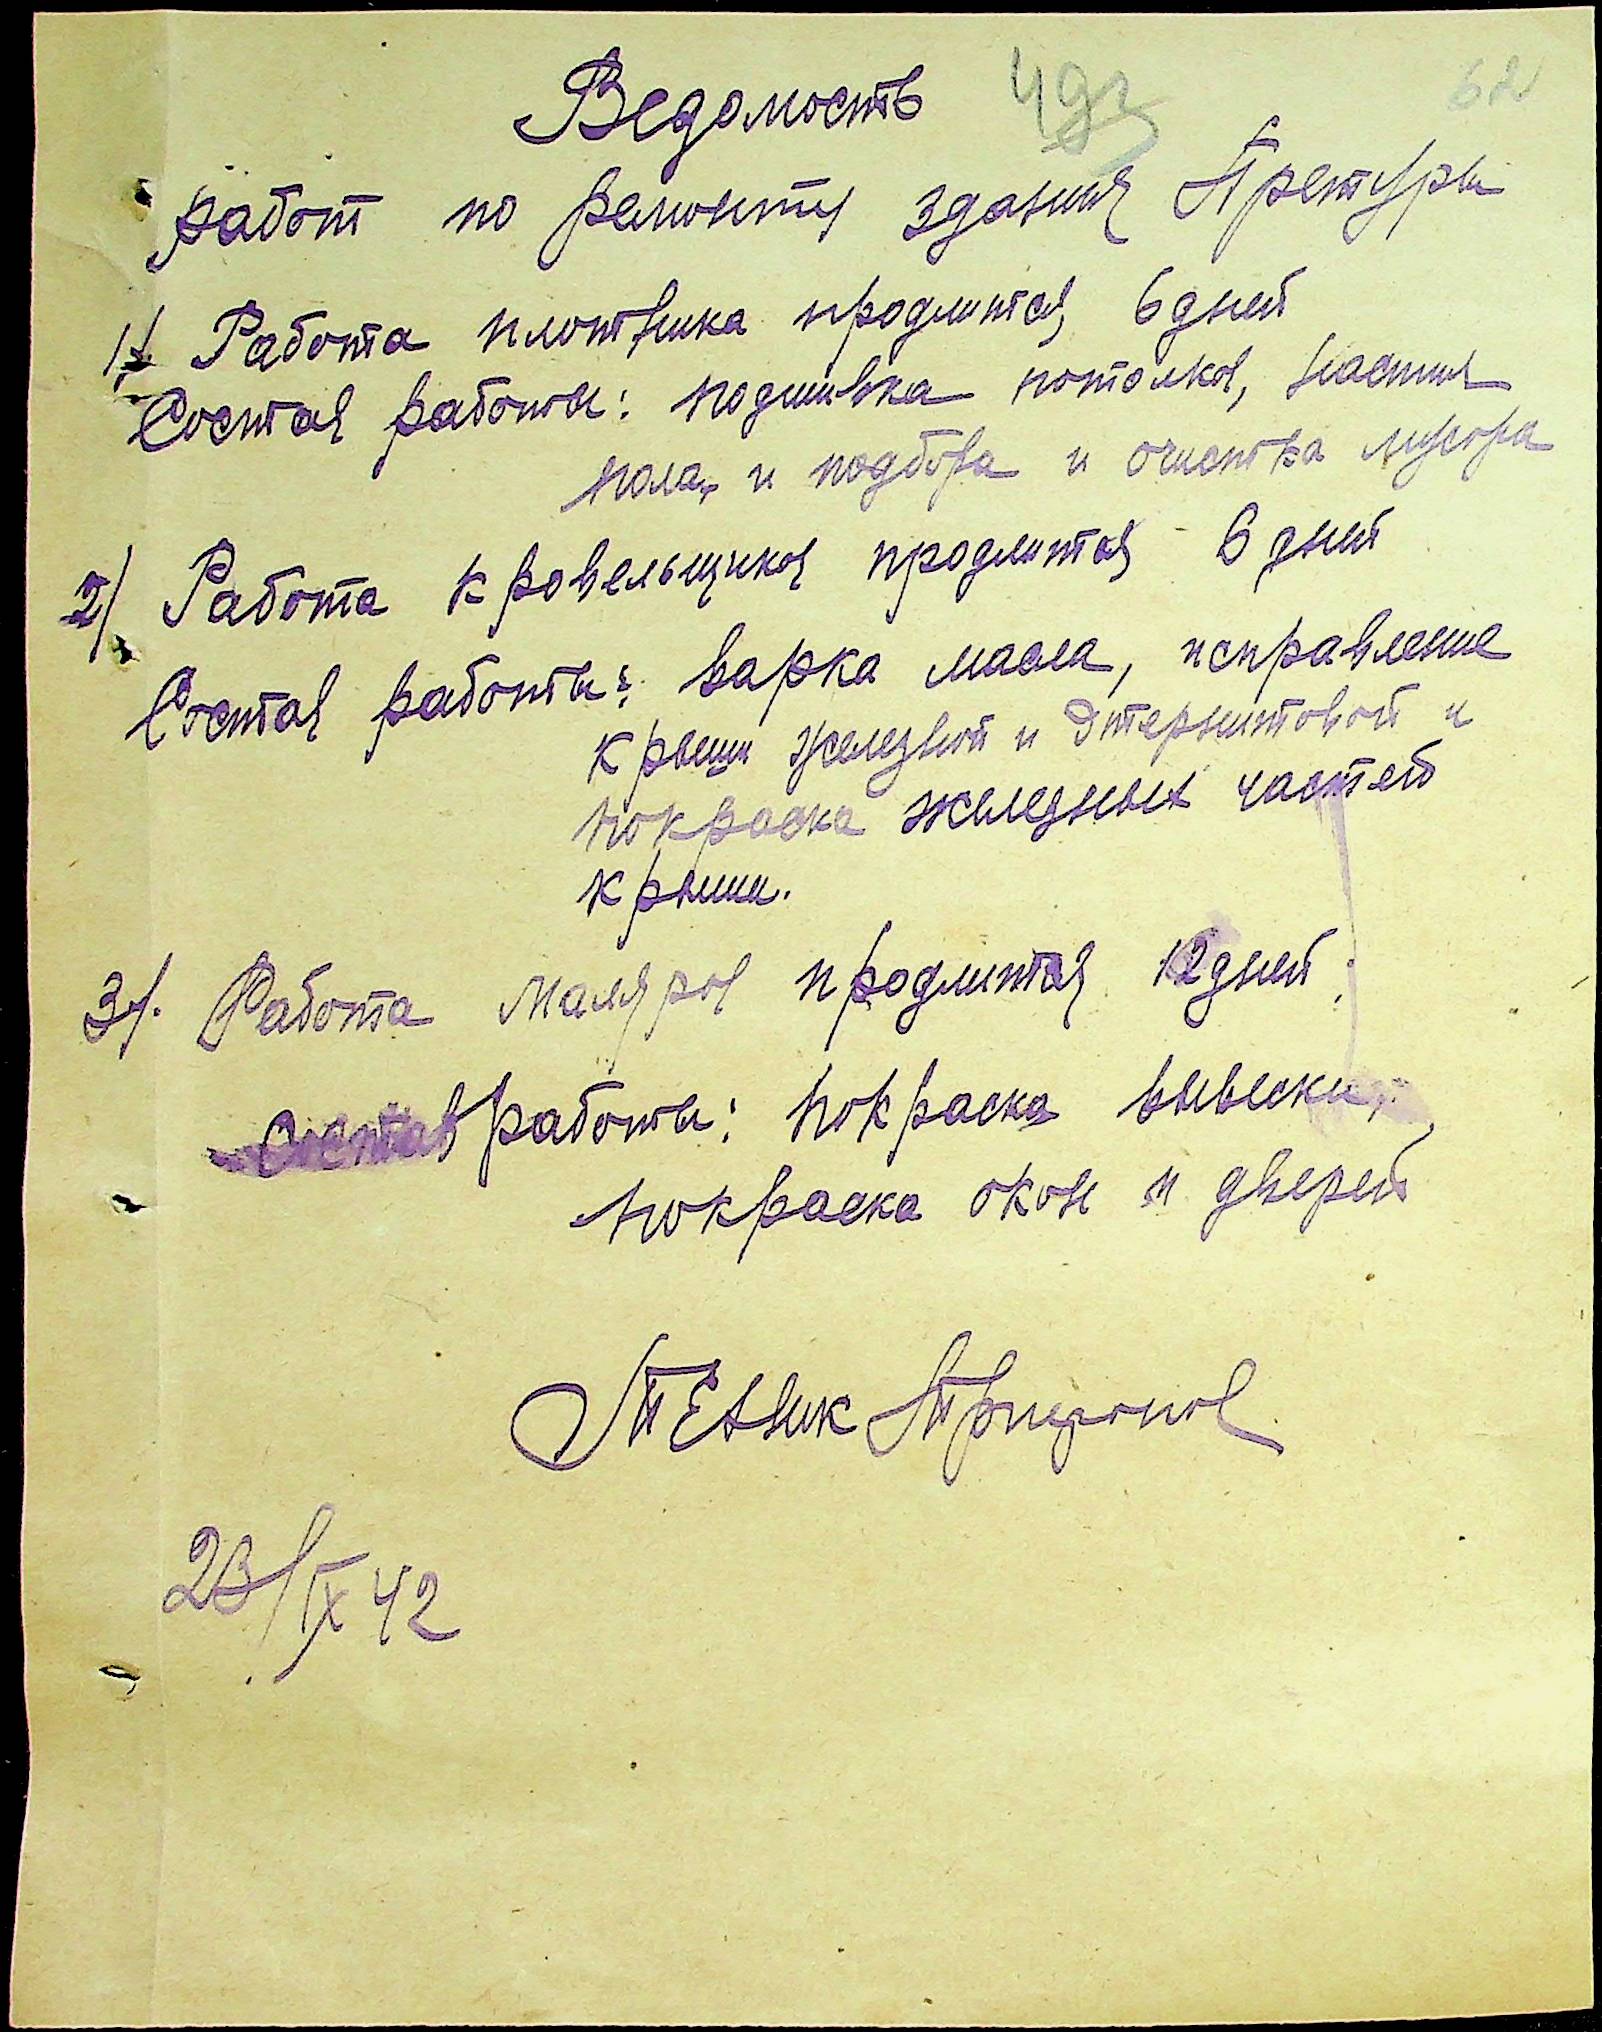 Ведомость
62
работ по ремонту здания Претуры
1/ Работа плотника продлится 6 дней
Состав работы: подшивка потолков, настил
пола, и подбора и очистка мусора
2/ Работа кровельщиков продлится 6 дней
Состав работы: варка масла, исправление
крыши железной и этернитовой и
покраска железных частей
крыши.
3/. Работа маляров продлится 12 дней.
Состав работы: покраска вывески,
покраска окон и дверей
Техник
23/IX 42